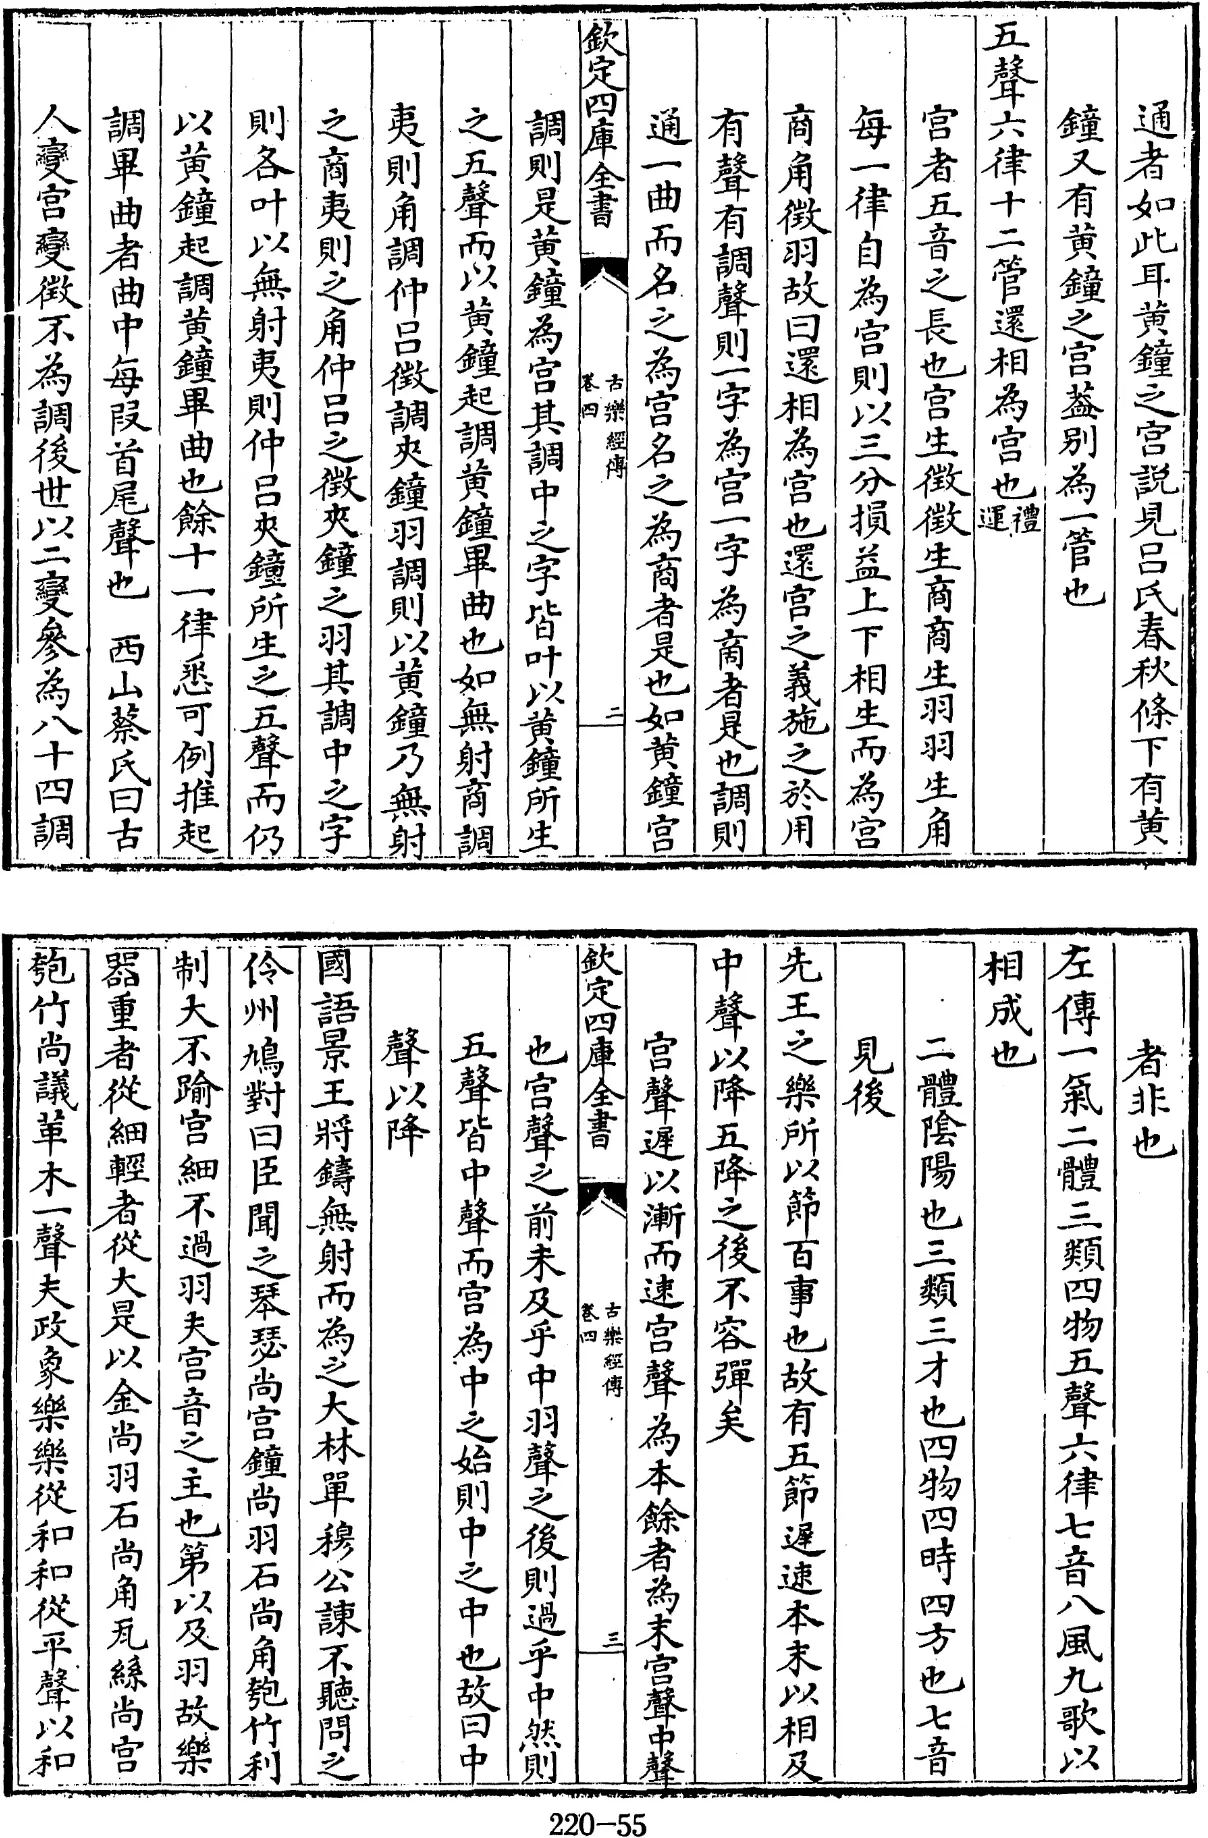 通者如此耳黄鐘之宫説見吕氏春秋條下有黄
鐘又有黄鐘之宫葢别為一管也
五聲六律十二管還相為宫也禮運
宫者五音之長也宫生徴徴生商商生羽羽生角
每一律自為宫則以三分損益上下相生而為宫
商角徴羽故曰還相為宫也還宫之義施之於用
有聲有調聲則一字為宫一字為商者是也調則
通一曲而名之為宫名之為商者是也如黄鐘宫
欽定四庫全書
古樂經傳
卷四
二
調則是黄鐘為宫其調中之字皆叶以黄鐘所生
之五聲而以黄鐘起調黄鐘畢曲也如無射商調
夷則角調仲吕徴調夾鐘羽調則以黄鐘乃無射
之商夷則之角仲吕之徴夾鐘之羽其調中之字
則各叶以無射夷則仲吕夾鐘所生之五聲而仍
以黄鐘起調黄鐘畢曲也餘十一律悉可例推起
調畢曲者曲中每叚首尾聲也　西山蔡氏曰古
人變宫變徴不為調後世以二變參為八十四調
者非也
左傳一氣二體三類四物五聲六律七音八風九歌以
相成也
二體陰陽也三類三才也四物四時四方也七音
見後
先王之樂所以節百事也故有五節遲速本末以相及
中聲以降五降之後不容彈矣
宫聲遲以漸而速宫聲為本餘者為末宫聲中聲
欽定四庫全書
古樂經傳
卷四
三
也宫聲之前未及乎中羽聲之後則過乎中然則
五聲皆中聲而宫為中之始則中之中也故曰中
聲以降
國語景王將鑄無射而為之大林單穆公諫不聽問之
伶州鳩對曰臣聞之琴瑟尚宫鐘尚羽石尚角匏竹利
制大不踰宫細不過羽夫宫音之主也第以及羽故樂
器重者從細輕者從大是以金尚羽石尚角瓦絲尚宫
匏竹尚議革木一聲夫政象樂樂從和和從平聲以和
220-55